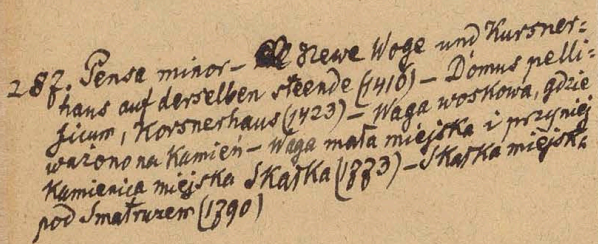 287. Pensa minor – Newe Woge und Kursner=
haus auf derselben steende (1410) – Domus pelli=
ficum, Korsnerhaus (1423) – Waga woskowa, gdzie
ważono na kamien – Waga mała miejska i przy niej
Kamienica miejska Skałka (1773) – Skałka miejska
pod Smatruzem (1790)